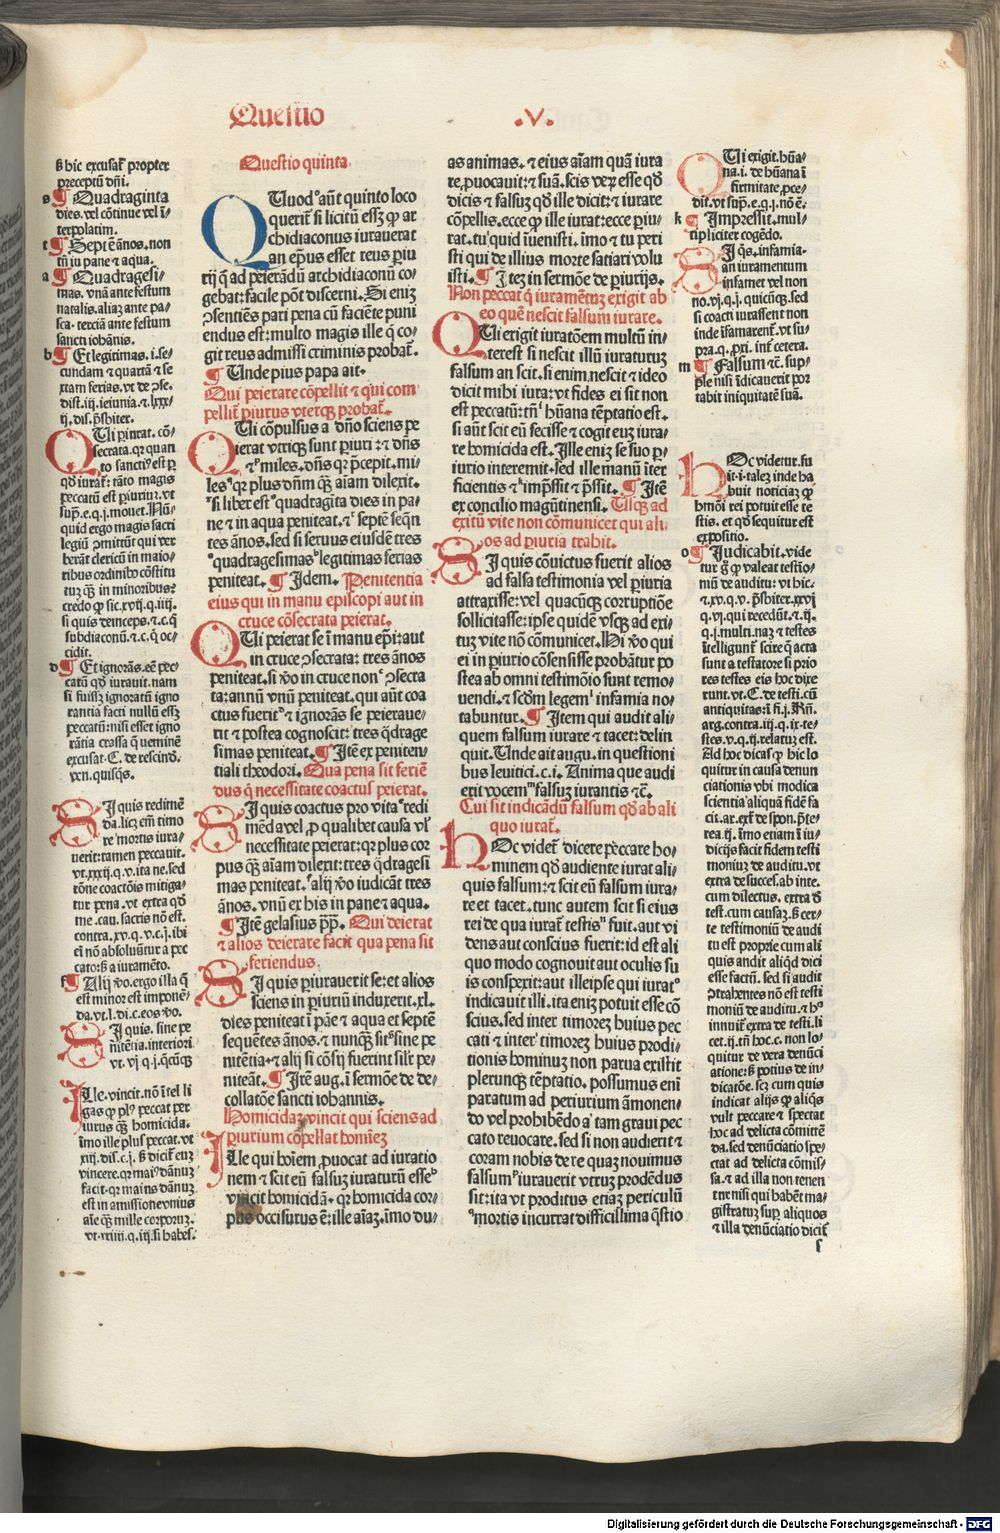 Questio .V.
ß hic excusat᷑ propter
preceptū dn̄i.
s ¶ Quadraginta
dies. vel cōtinue vel ī-
terpolatim.
t ¶ Septē ānos. non
tn̄ iu pane et aqua.
a ¶ Quadragesi-
mas. vnā ante festum
natalis. aliaz ante pa-
sca. terciā ante festum
sancti iohānis.
b ¶ Et legitimas. i. se-
cundam et quartā et se
xtam ferias. vt de ꝯse.
dist. iij. ieiunia. et lxxx-
ij. dis. p̄sbiter.
QUi piurat. cō-
secrata. qꝛ quan
to sanctiꝰ est p
qd̄ iurat᷑: tāto magis
peccatū est piuriuꝫ. vt
sup̄. e. q. j. mouet. Nū-
quid ergo magis sacri
legiū ꝯmittūt qui ver
berāt clericū in maio-
ribus ordinibꝰ cōstitu
tuꝫ qꝫ in minoribus?
credo ꝙ sic. xvij. q. iiij.
si quis deinceps. et c. q̄
subdiaconū. et c. q̄ oc-
cidit.
d ¶ Et ignorās. eē pec-
catū qd̄ iurauit. nam
si fuisset ignoratū igno
rantia facti nullū esset
peccatū: nisi esset igno
rātia crassa q̄ neminē
excusat. C. de rescind.
ven. quisq̄s.
SI quis redimē
da. licꝫ em̄ timo
re mortis iura-
uerit: tamen peccauit.
vt. xxxij. q. v. ita ne. sed
rōne coactōis mitiga-
tur pena. vt extra qd̄
me. cau. sacris nō est.
contra. xv. q. v. c. j. ibi
ei nō absoluūtur a pec
cato: ß a iuramēto.
f ¶ Alij v̄o. ergo illa q̄
est minor est imponē-
da. vt. l. di. c. eos v̄o.
SI quis. sine pe
nitētia. interiori
vt. vj q. j. q̄cūqꝫ
ILle. vincit. nō ītel li
gas ꝙ plꝰ peccat per
iurus qꝫ homicida.
īmo ille plus peccat. vt
xiij. dis. c. j. ß dicit᷑ eum
vincere. qꝛ maiꝰ dānuꝫ
facit. qꝛ maius dānuꝫ
est in amissione vnius
aīe qꝫ mille corporuꝫ.
vt. xxiiij. q. iij. si habes.
Questio quinta.
QUod aūt quinto loco
querit᷑ si licitū essꝫ ꝙ ar
chidiaconus iurauerat
an ep̄us esset reus piu
rij q̄ ad peierādū archidiaconū co-
gebat: facile pōt discerni. Si eniꝫ
ꝯsentiēs pari pena cū faciēte puni
endus est: multo magis ille q̄ co-
git reus admissi criminis probat᷑.
¶ Unde pius papa ait.
Qui peierare cōpellit et qui com
pellit᷑ piurus vterqꝫ probat᷑.
QUi cōpulsus a dn̄o sciens pe
ierat vtriqꝫ sunt piuri: et dn̄s
et miles. dn̄s qꝛ p̄cepit. mi-
les qꝛ plus dn̄m qꝫ aīam dilexit.
si liber est quadragīta dies in pa-
ne et in aqua peniteat. et septē seq̄n
tes ānos. sed si seruus eiusdē tres
quadragesimas legitimas ferias
peniteat. ¶ Idem. Penitentia
eius qui in manu episcopi aut in
cruce cōsecrata peierat.
QUi peierat se ī manu ep̄i: aut
in cruce ꝯsecrata: tres ānos
peniteat. si v̄o in cruce non ꝯsecra
ta: annū vnū peniteat. qui aūt coa
ctus fuerit et ignorās se peieraue-
rit et postea cognoscit: tres q̄drage
simas peniteat. ¶ Itē ex peniten-
tiali theodori. Qua pena sit feriē
dus q̄ necessitate coactus peierat.
SI quis coactus pro vita redi
mēda vel ꝓ qualibet causa vl̄
necessitate peierat: qꝛ plus cor
pus qꝫ aīam dilexit: tres q̄dragesi
mas peniteat. alij v̄o iudicāt tres
ānos. vnū ex his in pane et aqua.
¶ Itē gelasius pp̄. Qui deierat
et alios deierare facit qua pena sit
feriendus.
SI quis piurauerit se: et alios
sciens in piuriū induxerit. xl.
dies peniteat ī pāe et aqua et septē
sequētes ānos. et nunqꝫ sit sine pe
nitētia. et alij si cōscij fuerint sil̄r pe-
niteāt. ¶ Itē aug. ī sermōe de de-
collatōe sancti iohannis.
Homicidaꝫ vincit qui sciens ad
piurium cōpellat homīeꝫ
ILle qui hoīem ꝓuocat ad iuratio
nem et scit eū falsuꝫ iuraturū esse
vincit homicidā. qꝛ homicida cor-
pus occisurus ē: ille aīaꝫ. īmo du-
as animas. et eius aīam quā iura
re ꝓuocauit: et suā. scis veꝝ esse qd̄
dicis et falsuꝫ qd̄ ille dicit: et iurare
cōpellis. ecce ꝙ ille iurat: ecce piu-
rat. tu quid īuenisti. īmo et tu peri
sti qui de illius morte satiari volu
isti. ¶ Iteꝫ in sermōe de piurijs.
Non peccat q̄ iuramētuꝫ exigit ab
eo quē nescit falsum iurare.
QUi exigit iuratōem multū in-
terest si nescit illū iuraturuꝫ
falsum an scit. si enim nescit et ideo
dicit mihi iura: vt fides ei sit non
est peccatū: tn̄ hūana tēptatio est.
si aūt scit eū fecisse et cogit euꝫ iura-
re homicida est. Ille eniꝫ se suo pi-
iurio interemit. sed ille manū īter
ficientis et imp̄ssit et p̄ssit. ¶ Itē
ex concilio magūtinensi. Usqꝫ ad
exitū vite non cōmunicet qui ali-
os ad piuria trahit.
SI quis cōuictus fuerit alios
ad falsa testimonia vel piuria
attraxisse: vel quacūqꝫ corruptiōe
sollicitasse: ipse quidē vsqꝫ ad exi-
tuꝫ vite nō cōmunicet. Hi v̄o qui
ei in piurio cōsensisse probātur po
stea ab omni testimōio sunt remo-
uendi. et scdm legem infamia no-
tabuntur. ¶ Item qui audit ali-
quem falsum iurare et tacet: delin
quit. Unde ait augu. in questioni
bus leuitici. c. i. Anima que audi
erit vocem falsuꝫ iurantis et c̄.
Cui sit indicādū falsum qd̄ ab ali
quo iurat᷑.
HOc videt᷑ dicere peccare ho-
minem qd̄ audiente iurat ali-
quis falsum: et scit eū falsum iura-
re et tacet. tunc autem scit si eius
rei de qua iurat᷑ testis fuit. aut vi
dens aut conscius fuerit: id est ali
quo modo cognouit aut oculis su
is conspexit: aut ille ipse qui iurat
indicauit illi. ita eniꝫ potuit esse cō
scius. sed inter timoreꝫ huius pec
cati et inter timoreꝫ huius prodi-
tionis hominuꝫ non parua existit
plerunqꝫ tēptatio. possumus eni
paratum ad periurium āmonen-
do vel prohibēdo a tam graui pec
cato reuocare. sed si non audierit et
coram nobis de re quaꝫ nouimus
falsum iurauerit vtruꝫ prodēdus
sit: ita vt proditus etiaꝫ periculū
mortis incurrat difficillima q̄stio
QUi exigit. hūa-
na. i. de hūana ī
firmitate ꝓce-
dit. vt sup̄. e. q. j. nō ē.
k ¶ Impressit. mul-
tipliciter cogēdo.
SI q̄s. infamia.
an iuramentum
infamet vel non
no. vj. q. j. quicūqꝫ. sed
si coacti iurassent non
inde īfamarent᷑. vt su-
pra. q. ꝓxi. inf̄. cetera.
m ¶ Falsum et c̄. sup-
ple nisi īdicauerit por
tabit iniquitatē suā.
HOc videtur. fu
it. i. talez inde ha
buit noticiaꝫ ꝙ
hmōi rei potuit esse te
stis. et qd̄ sequitur est
expositio.
o ¶ Iudicabit. vide
tur g̊ ꝙ valeat testīo-
niū de auditu: vt hic.
et. xv. q. v. p̄sbiter. xxvj
q. vj. qui recedūt. et. ij.
q. j. multi. naꝫ et testes
ītelligunt᷑ scire q̄ acta
sunt a testatore si prio
res testes eis hoc dixe
runt. vt. C. de testi. cū
antiquitas: ī fi. j. Rn̄.
arg. contra. iij. q. ix. te-
stes. v. q. ij. relatuꝫ est.
Ad hoc dicas ꝙ hic lo
quitur in causa denun
ciationis vbi modica
scientia aliquā fidē fa
cit. ar. ext᷑ de spon. p̄te-
rea. ij. īmo etiam ī iu-
dicijs facit fidem testi
moniuꝫ de auditu. vt
extra de succes. ab inte.
cum dilectus. extra d̄
test. cum causaꝫ. ß cer-
te testimoniū de audi
tu est proprie cum ali
quis andit aliqd̄ dici
esse factū. sed si audit
ꝯtrahentes nō est testi
moniū de auditu. et hͦ
innuit᷑ extra de testi. li
cet. ij. tn̄ hoc. c. non lo-
quitur de vera denūci
atione: ß potius de in-
dicatōe. scꝫ cum quis
indicat alijs ꝙ aliq̄s
vult peccare et spectat
hoc ad delicta cōmittē
da. sed denūciatio spe-
ctat ad delicta cōmis-
sa. et ad illa non tenen
tur nisi qui habēt ma-
gistratuꝫ suꝑ aliquos
et illa denūciatio dicit᷑
s
Digitalisierung gefördert durch die Deutsche Forschungsgemeinschaft - DFG